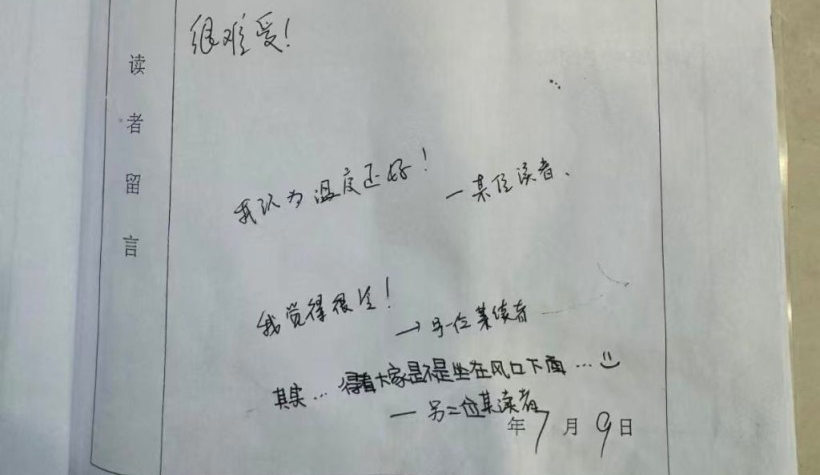 读者留言
很难受!
我认为温度还好!
—某位读者.
我觉得很冷!
→另一位某读者
其实… 得看大家是不是坐在风口下面…
— 另二位某读者
年7月9日